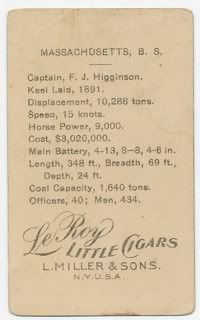 MASSACHUSETTS, B. S.
Captain, F. J. Higginson.
Keel Laid, 1891.
Displacement, 10,288 tons.
Speed, 15 knots.
Horse Power, 9,000.
Cost, $3,020,000.
Main Battery, 4-13, 8-8, 4-6 in.
Length, 348 ft., Breadth, 69 ft.,
Depth, 24 ft.
Coal Capacity, 1,640 tons.
Officers, 40; Men, 434.
Le Roy
LITTLE CIGARS
L. MILLER & SONS.
N.Y. U.S.A.